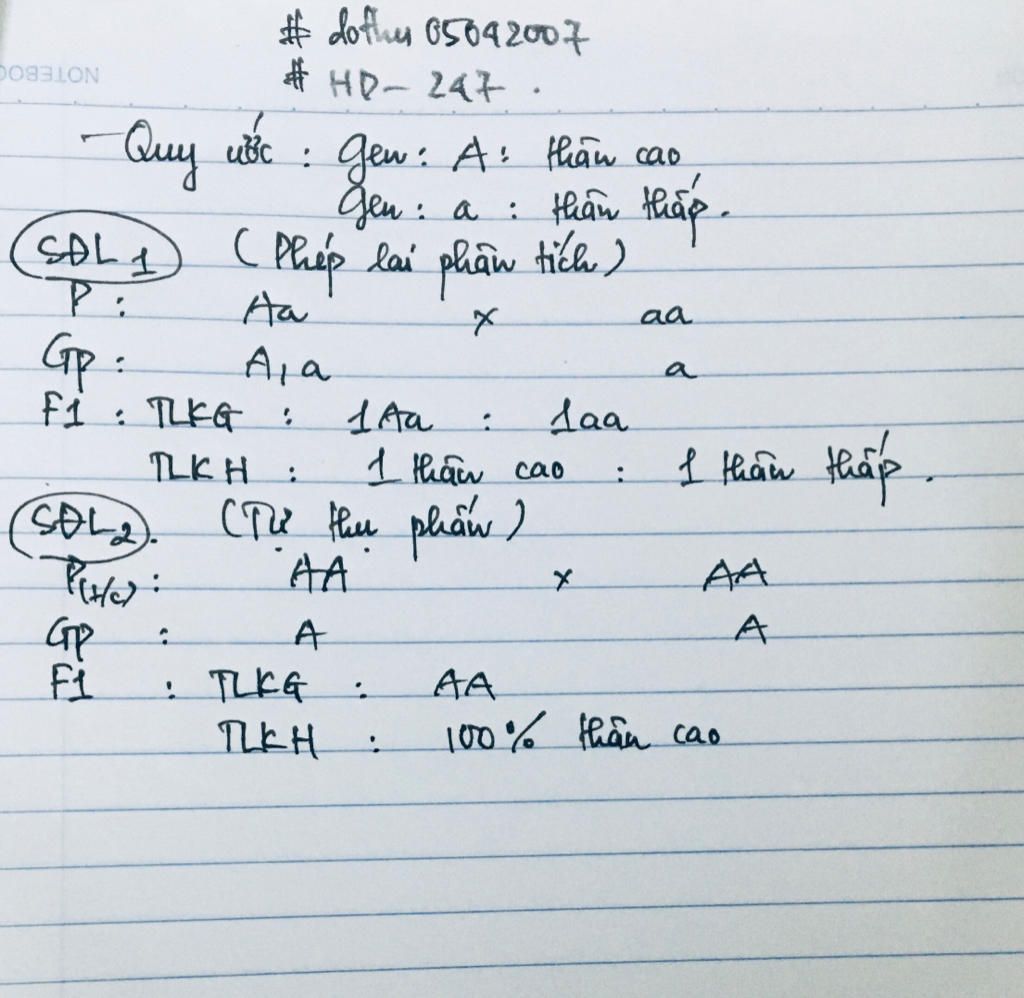 # dothu05042007
NOTEBOO
# HD - 247 .
- Quy ước : gen : A : thân cao
gen : a : thân thấp .
SĐL 1 ( Phép lai phân tích )
P : Aa x aa
Gp : A, a a
F1 : TLKG : 1Aa : 1aa
TLKH : 1 thân cao : 1 thân thấp .
SĐL2 . ( Tự thụ phấn )
P(t/c) : AA x AA
Gp : A A
F1 : TLKG : AA
TLKH : 100% thân cao